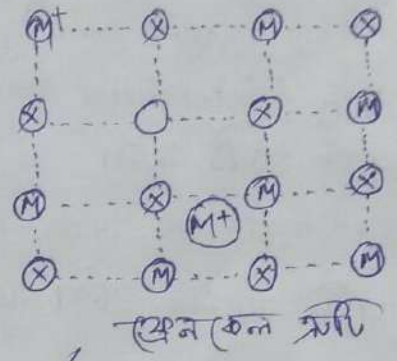 M+ X M X
X X M
M X M X
M+
X M X M
ফ্রেনকেল ত্রুটি